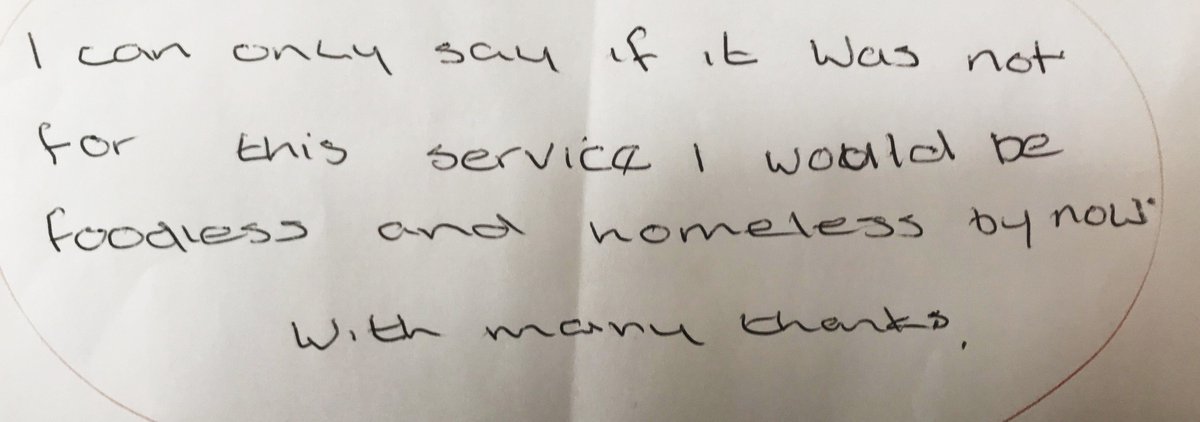 I can only say if it was not
for this service I would be
foodless and homeless by now.
With many thanks.